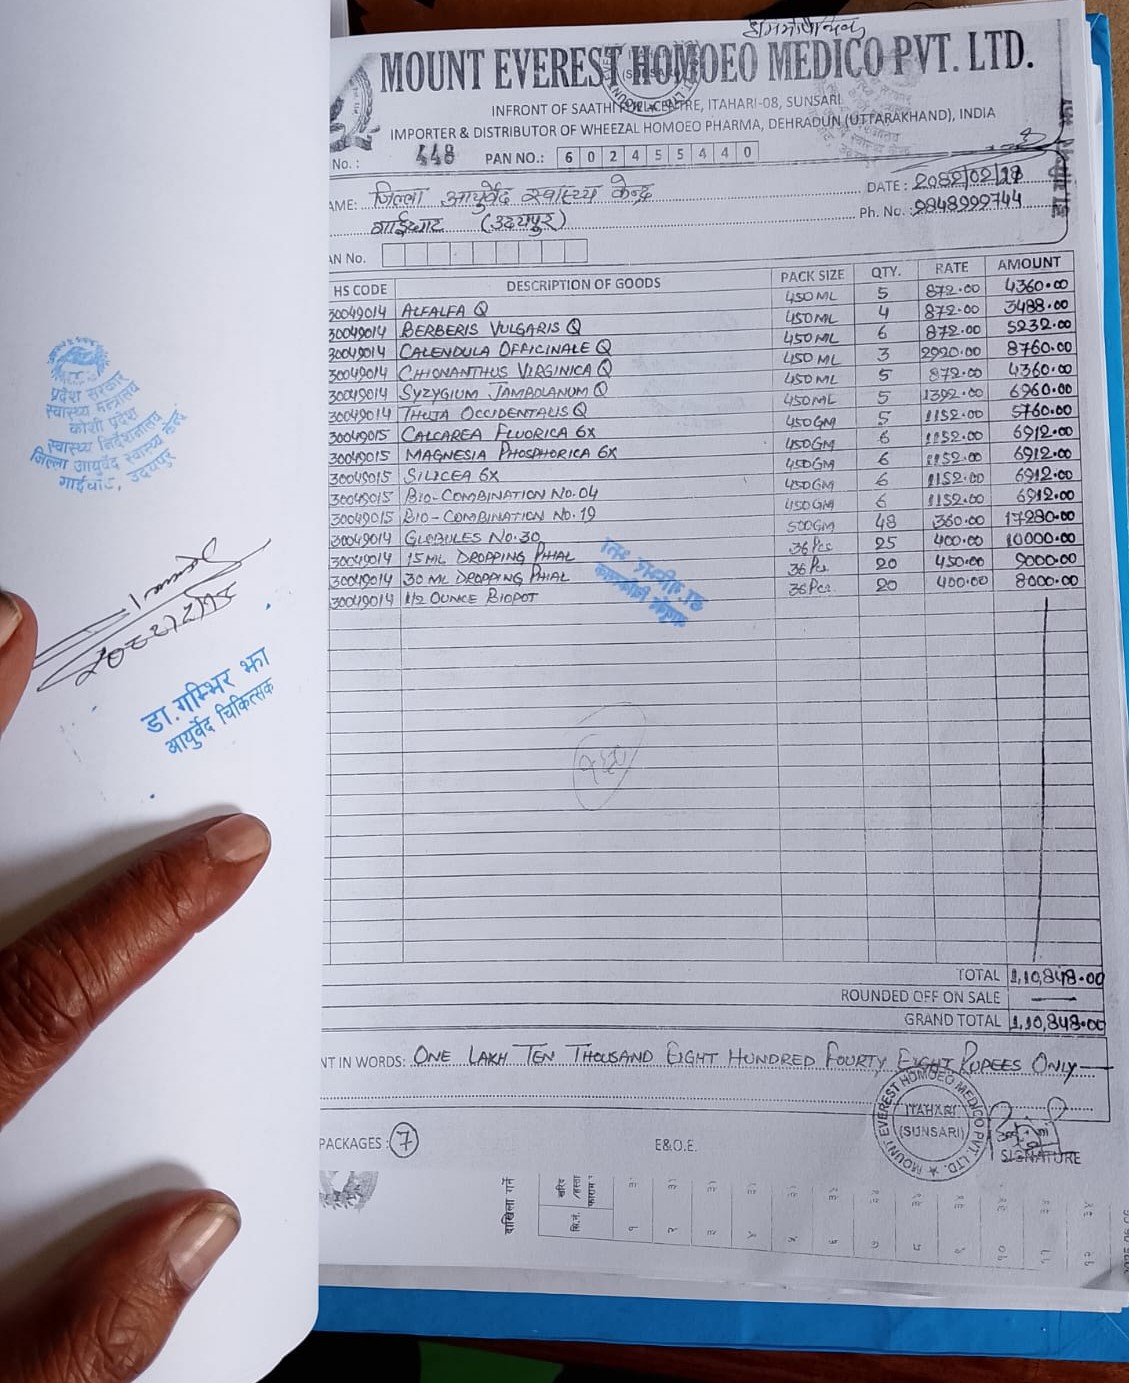 MOUNT EVEREST HOMOEO MEDICO PVT. LTD.
INFRONT OF SAATHI FUEL CENTRE, ITAHARI-08, SUNSARI
IMPORTER & DISTRIBUTOR OF WHEEZAL HOMOEO PHARMA, DEHRADUN (UTTARAKHAND), INDIA
No. : 448 PAN NO.: 602455440
AME: जिल्ला आयुर्वेद स्वास्थ्य केन्द्र DATE : 2082/02/28
गाईघाट (उदयपुर) Ph. No. 9848999744
AN No.
HS CODE DESCRIPTION OF GOODS PACK SIZE QTY. RATE AMOUNT
30049014 ALFALFA Q 450ML 5 872.00 4360.00
30049014 BERBERIS VULGARIS Q 450ML 4 872.00 3488.00
30049014 CALENDULA OFFICINALE Q 450ML 6 872.00 5232.00
30049014 CHIONANTHUS VIRGINICA Q 450ML 3 2920.00 8760.00
30049014 SYZYGIUM JAMBOLANUM Q 450ML 5 872.00 4360.00
30049014 THUJA OCCIDENTALIS Q 450ML 5 1392.00 6960.00
30049015 CALCAREA FLUORICA 6X 450GM 5 1152.00 5760.00
30049015 MAGNESIA PHOSPHORICA 6X 450GM 6 1152.00 6912.00
30049015 SILICEA 6X 450GM 6 1152.00 6912.00
30049015 BIO-COMBINATION NO.04 450GM 6 1152.00 6912.00
30049015 BIO-COMBINATION NO.19 450GM 6 1152.00 6912.00
30049014 GLOBULES NO.30 500GM 48 360.00 17280.00
30049014 15 ML DROPPING PHIAL 36Pcs 25 400.00 10000.00
30049014 30 ML DROPPING PHIAL 36Pcs 20 450.00 9000.00
30049014 1/2 OUNCE BIOPOT 36Pcs 20 400.00 8000.00
TOTAL 1,10,848.00
ROUNDED OFF ON SALE —
GRAND TOTAL 1,10,848.00
NT IN WORDS: ONE LAKH TEN THOUSAND EIGHT HUNDRED FOURTY EIGHT RUPEES ONLY
PACKAGES : 7 E&O.E.
MOUNT EVEREST HOMOEO MEDICO PVT. LTD.
ITAHARI
(SUNSARI)
SIGNATURE
दाखिला गर्ने
प्रदेश सरकार
स्वास्थ्य मन्त्रालय
कोशी प्रदेश
स्वास्थ्य निर्देशनालय
जिल्ला आयुर्वेद स्वास्थ्य केन्द्र
गाईघाट, उदयपुर
डा. गम्भिर झा
आयुर्वेद चिकित्सक